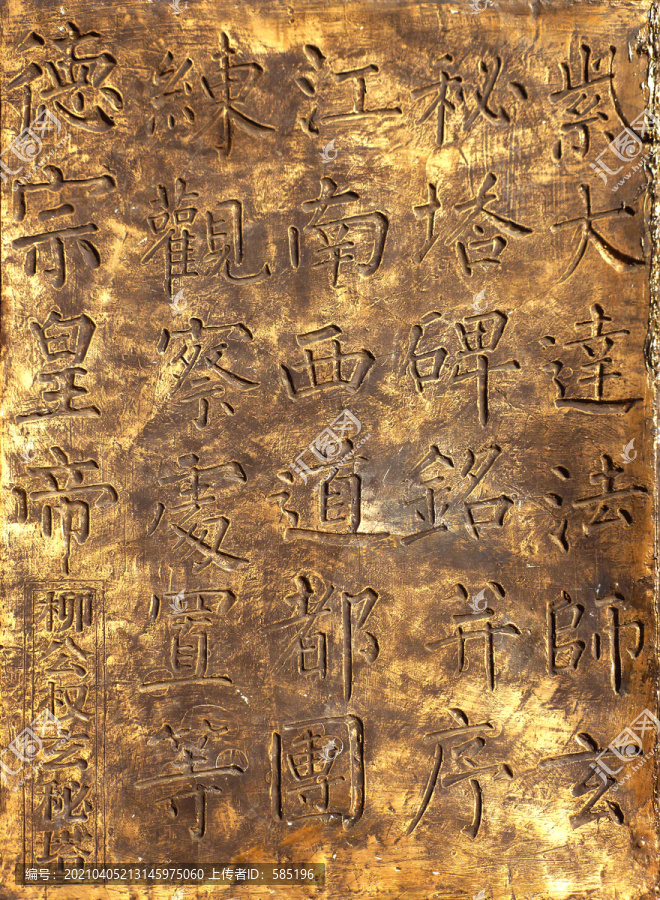 紫大達法師玄
秘塔碑銘并序
江南西道都團
練觀察處置等
德宗皇啼
柳公权玄秘塔
汇图网
编号：20210405213145975060 上传者ID：585196